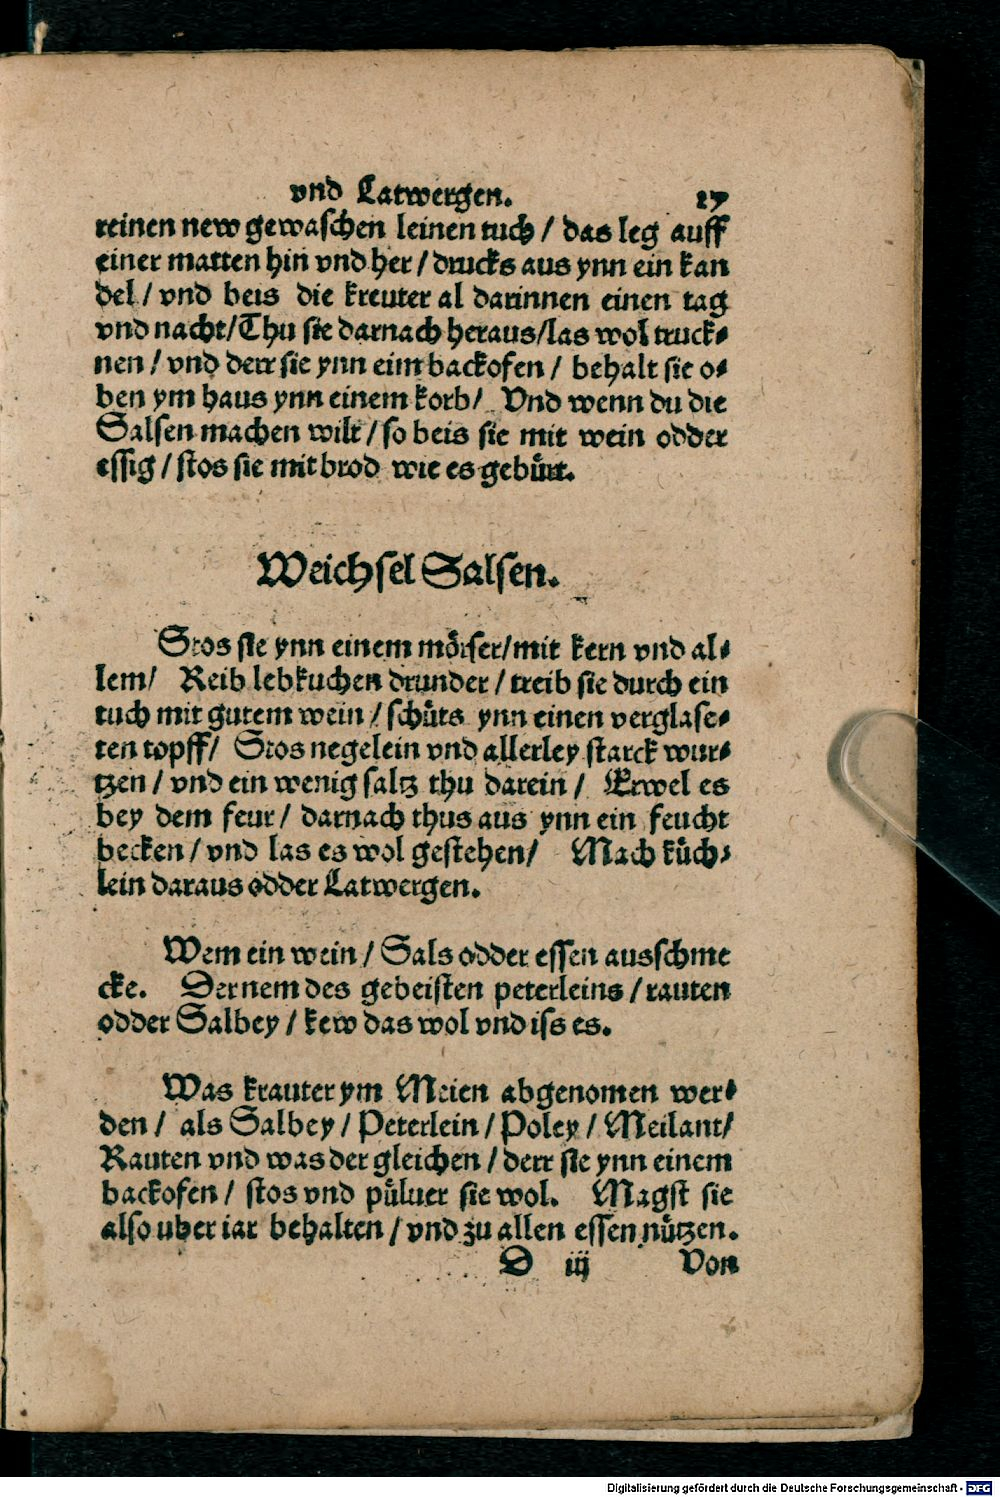 vnd Latwergen. 17
reinen new gewaschen leinen tuch / das leg auff
einer matten hin vnd her / drucks aus ynn ein kan
del / vnd beis die kreuter al darinnen einen tag
vnd nacht/Thu sie darnach heraus/las wol truck⸗
nen / vnd derr sie ynn eim backofen / behalt sie o⸗
ben ym haus ynn einem korb/ Vnd wenn du die
Salsen machen wilt / so beis sie mit wein odder
essig / stos sie mit brod wie es gebürt.
Weichsel Salsen.
Stos sie ynn einem mörser/mit kern vnd al⸗
lem/ Reib lebkuchen drunder / treib sie durch ein
tuch mit gutem wein / schüts ynn einen verglase⸗
ten topff/ Stos negelein vnd allerley starck wur⸗
tzen / vnd ein wenig saltz thu darein / Erwel es
bey dem feur / darnach thus aus ynn ein feucht
becken / vnd las es wol gestehen/ Mach küch⸗
lein daraus odder Latwergen.
Wem ein wein / Sals odder essen ausschme
cke. Der nem des gebeisten peterleins / rauten
odder Salbey / kew das wol vnd iss es.
Was krauter ym Meien abgenomen wer⸗
den / als Salbey / Peterlein / Poley / Meilant/
Rauten vnd was der gleichen / derr sie ynn einem
backofen / stos vnd püluer sie wol. Magst sie
also uber iar behalten / vnd zu allen essen nützen.
D iij Von
Digitalisierung gefördert durch die Deutsche Forschungsgemeinschaft - DFG